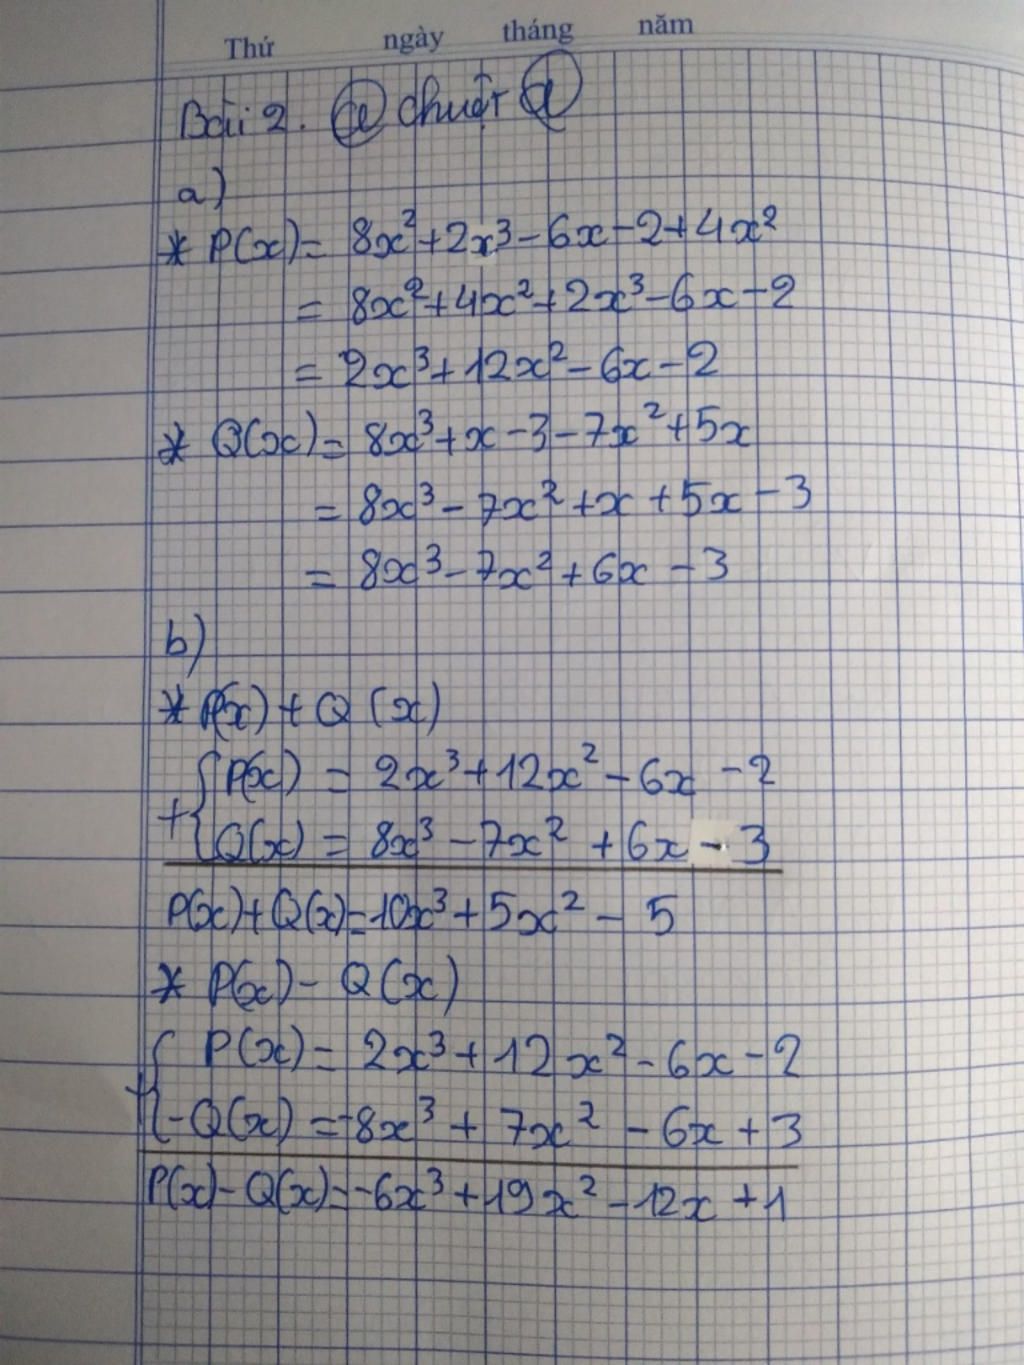 Thứ ngày tháng năm
Bài 2. chuột
a)
* P(x) = 8x² + 2x³ - 6x - 2 + 4x²
= 8x² + 4x² + 2x³ - 6x - 2
= 2x³ + 12x² - 6x - 2
* Q(x) = 8x³ + x - 3 - 7x² + 5x
= 8x³ - 7x² + x + 5x - 3
= 8x³ - 7x² + 6x - 3
b)
* P(x) + Q(x)
+ { P(x) = 2x³ + 12x² - 6x - 2
Q(x) = 8x³ - 7x² + 6x - 3
P(x) + Q(x) = 10x³ + 5x² - 5
* P(x) - Q(x)
+ { P(x) = 2x³ + 12x² - 6x - 2
-Q(x) = -8x³ + 7x² - 6x + 3
P(x) - Q(x) = -6x³ + 19x² - 12x + 1